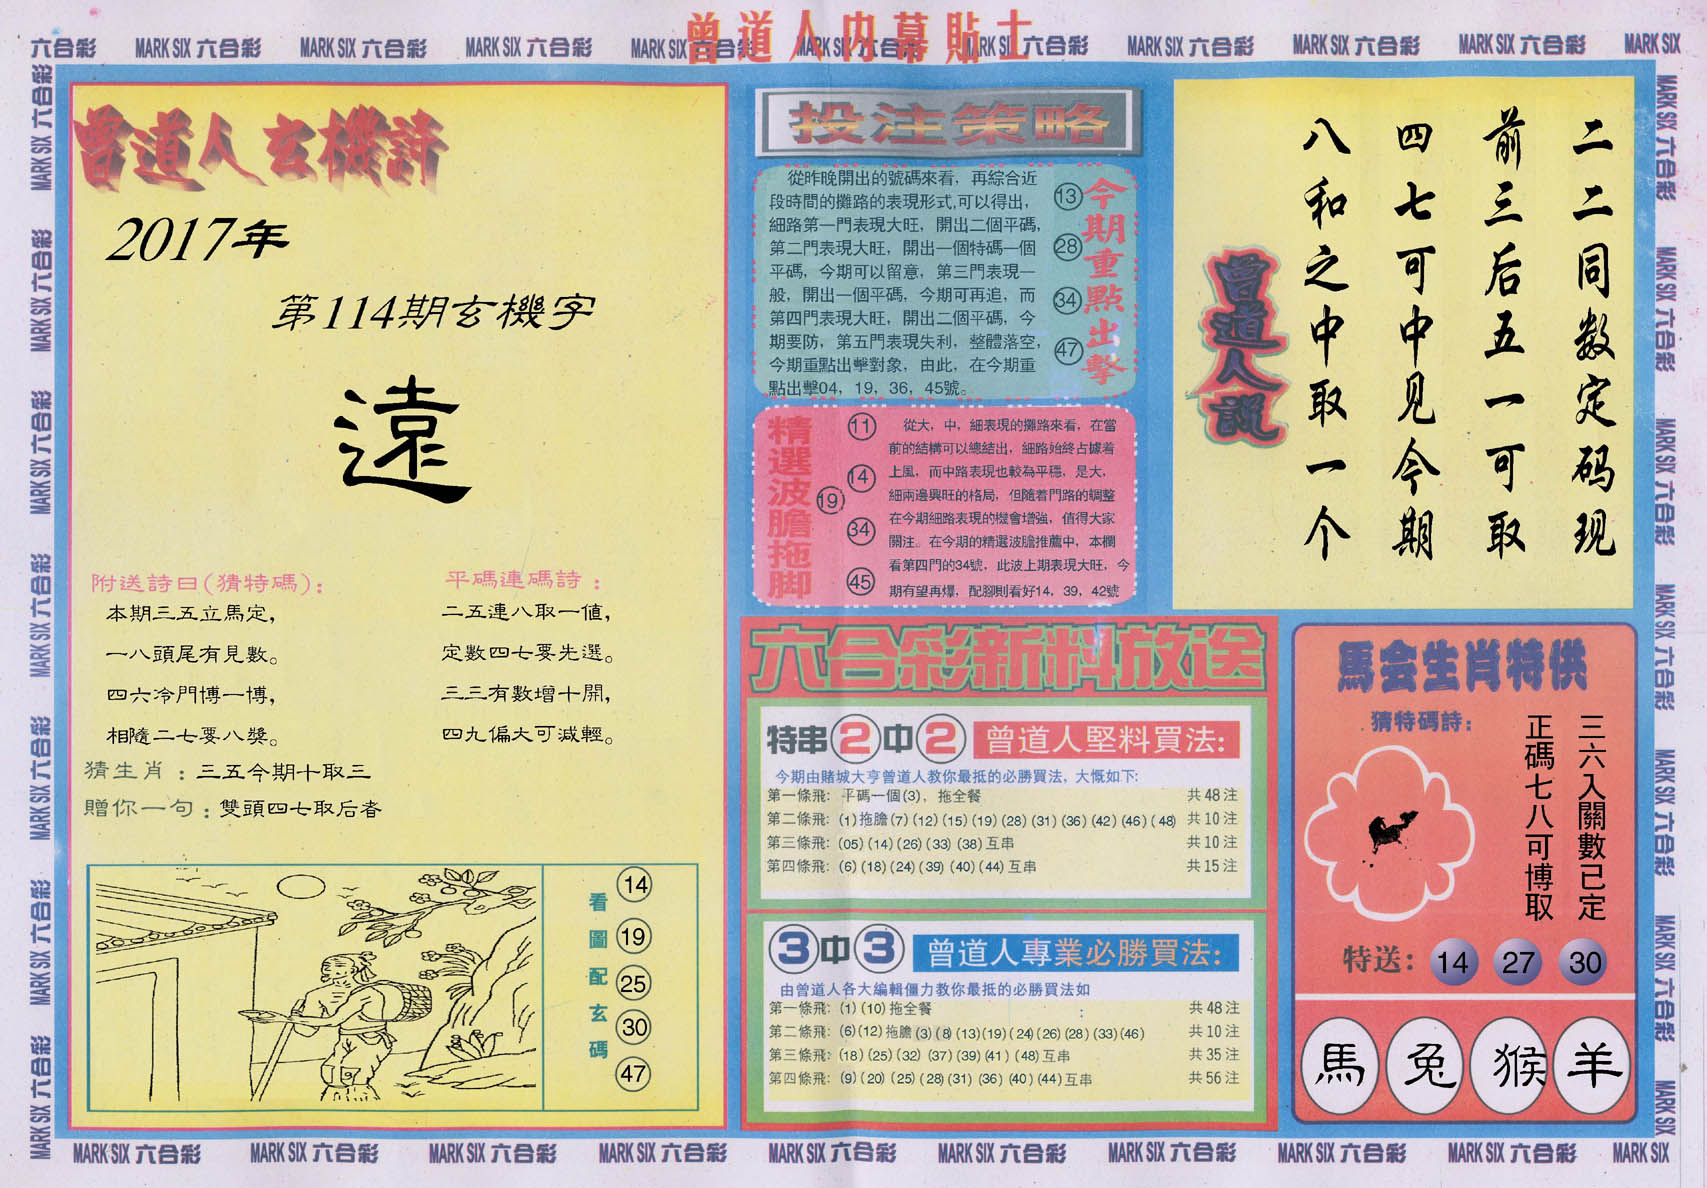 曾道人内幕貼士
六合彩 MARK SIX 六合彩 MARK SIX 六合彩 MARK SIX 六合彩 MARK SIX 六合彩 MARK SIX 六合彩 MARK SIX 六合彩 MARK SIX 六合彩 MARK SIX 六合彩 MARK SIX 六合彩 MARK SIX
曾道人玄機詩
2017年
第114期玄機字
遠
附送詩曰(猜特碼):
本期三五立馬定,
一八頭尾有見數。
四六冷門博一博,
相隨二七要八獎。
平碼連碼詩:
二五連八取一值,
定數四七要先選。
三三有數增十開,
四九偏大可減輕。
猜生肖:三五今期十取三
贈你一句:雙頭四七取后者
看圖配玄碼
14
19
25
30
47
投注策略
從昨晚開出的號碼來看，再綜合近
段時間的攤路的表現形式,可以得出，
細路第一門表現大旺，開出二個平碼，
第二門表現大旺，開出一個特碼一個
平碼，今期可以留意，第三門表現一
般，開出一個平碼，今期可再追，而
第四門表現大旺，開出二個平碼，今
期要防，第五門表現失利，整體落空，
今期重點出擊對象，由此，在今期重
點出擊04，19，36，45號。
今期重點出擊
13
28
34
47
精選波膽拖脚
11
14
19
34
45
從大，中，細表現的攤路來看，在當
前的結構可以總結出，細路始終占據着
上風，而中路表現也較為平穩，是大，
細兩邊興旺的格局，但隨着門路的調整
在今期細路表現的機會增強，值得大家
關注。在今期的精選波膽推薦中，本欄
看第四門的34號，此波上期表現大旺，今
期有望再爆，配腳則看好14，39，42號
曾道人説
二二同数定码现
前三后五一可取
四七可中见今期
八和之中取一个
六合彩新料放送
特串2中2 曾道人堅料買法:
今期由賭城大亨曾道人教你最抵的必勝買法，大慨如下:
第一條飛: 平碼一個(3)，拖全餐 共48注
第二條飛: (1)拖膽(7)(12)(15)(19)(28)(31)(36)(42)(46)(48) 共10注
第三條飛: (05)(14)(26)(33)(38)互串 共10注
第四條飛: (6)(18)(24)(39)(40)(44)互串 共15注
3中3 曾道人專業必勝買法:
由曾道人各大編輯僵力教你最抵的必勝買法如
第一條飛: (1)(10)拖全餐 共48注
第二條飛: (6)(12)拖膽(3)(8)(13)(19)(24)(26)(28)(33)(46) 共10注
第三條飛: (18)(25)(32)(37)(39)(41)(48)互串 共35注
第四條飛: (9)(20)(25)(28)(31)(36)(40)(44)互串 共56注
馬会生肖特供
猜特碼詩:
三六入關數已定
正碼七八可博取
特送: 14 27 30
馬 兔 猴 羊
MARK SIX 六合彩 MARK SIX 六合彩 MARK SIX 六合彩 MARK SIX 六合彩 MARK SIX 六合彩 MARK SIX 六合彩 MARK SIX 六合彩 MARK SIX 六合彩 MARK SIX 六合彩 MARK SIX